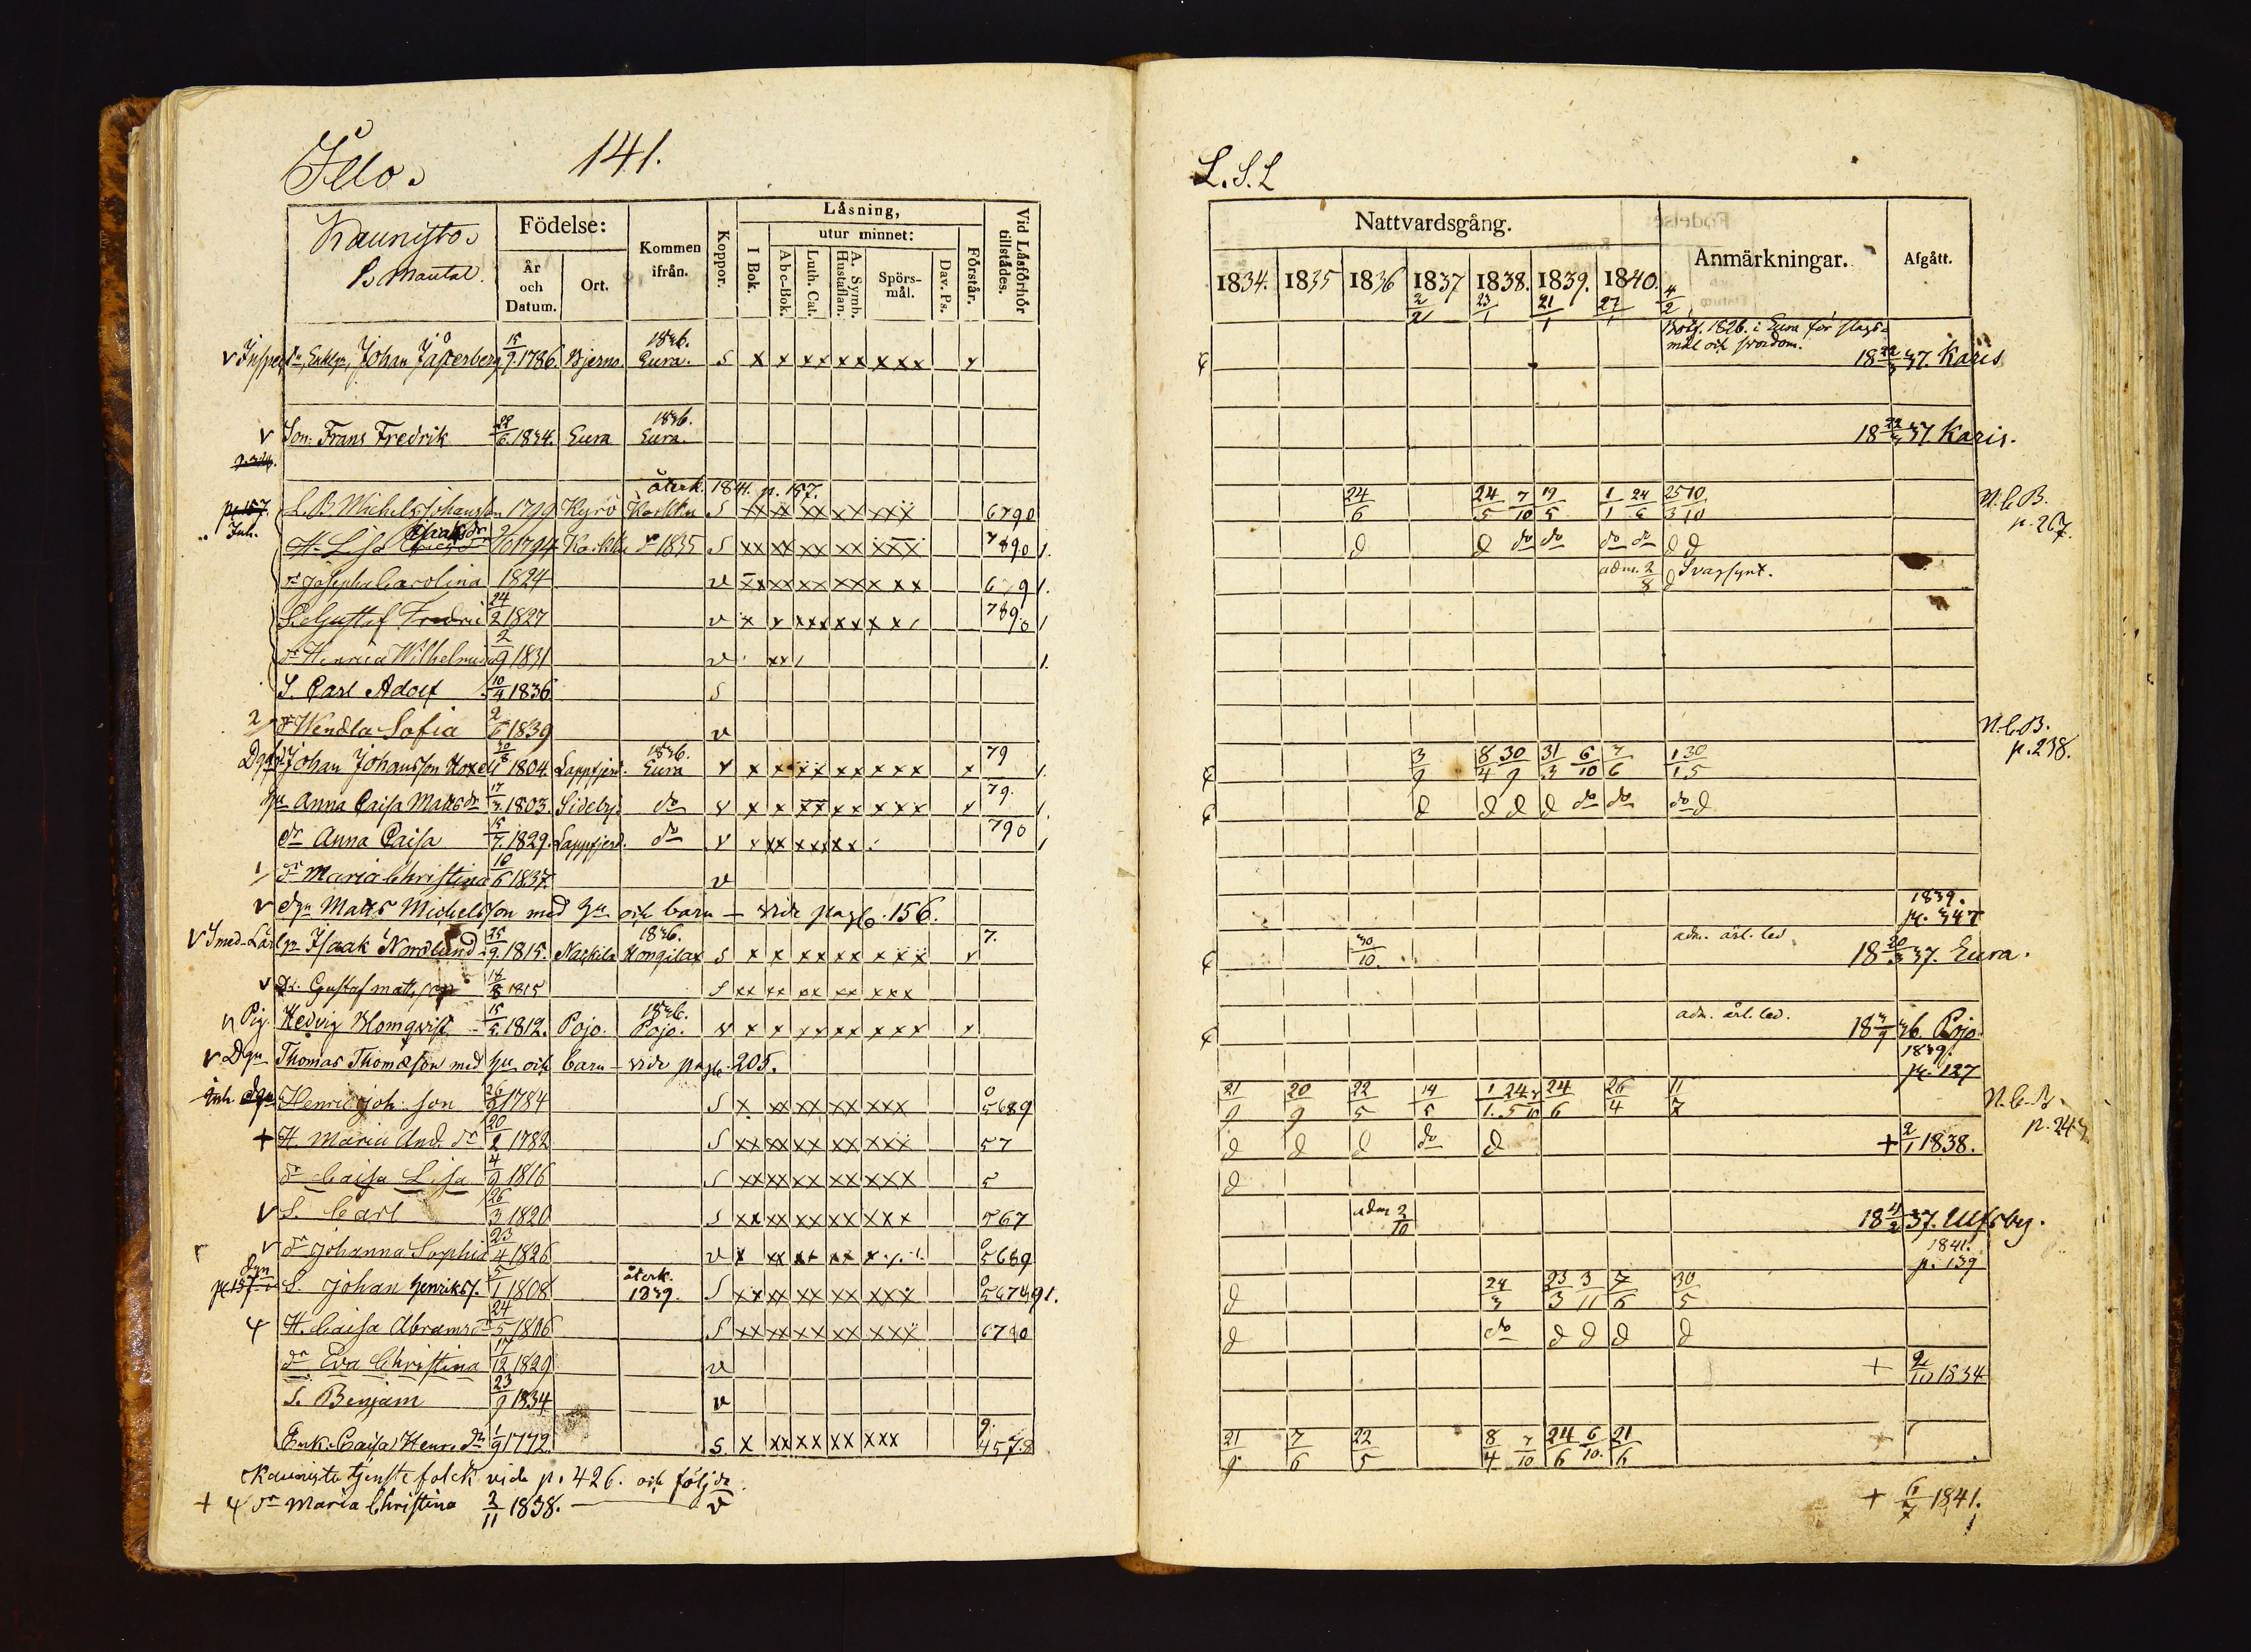 Ilo. 141.
Kaunisto.
Mantal.
Födelse:
År och Datum.
Ort.
Kommen ifrån.
Koppor.
Läsning,
utur minnet:
I Bok.
Abc-Bok.
Luth. Cat.
A. Symb. Hustaflan.
Spörsmål.
Dav. Ps.
Förstår.
Vid Läsförhör tillstädes.
v Johan Jåsterberg 15/9 1786. Bjerno. 1836. Eura. S x x xx xx xxx x
v Son: Frans Fredrik 22/6 1834. Eura 1836. Eura.
återk. 1841. p. 157.
p. 157. L. B. Michel Johansson 1799 Kyrö Karkku S xx xx xx xx xxx 6790
Inh. H. Lisa Isaaksdr 1794 Karkku 1835 S xx xx xx xx xxx 7890 1.
dr Josepha Carolina 1824 v xx xx xx xx xxx 679 1.
S. Gustaf Fredric 24/2 1827 v x x xxx xx xx 7890 1
dr Henrica Wilhelmina 2/9 1831 v xx 1.
S. Carl Adolf 10/4 1836 S
2 dr Wendla Sofia 2/6 1839 v
Johan Johansson 30/6 1804. Lappfjerd. 1836. Eura v x x xx xx xxx x 79 1.
hu Anna Caisa Mattsdr 17/3 1803. Sideby. do v x x xx xx xxx x 79. 1
dr Anna Caisa 15/7 1829. Lappfjerd. do v x xx xx xx 790 1
1 dr Maria Christina 16/6 1837. v
v dgn Matts Michelsson med hu och barn – vide pag. 156.
v Smed-Lärl. Isaak Nordlund 25/9 1815. Nackila 1836. Hongilax S x x xx xx xxx x 7.
v Dr. Gustaf Matts son 18/8 1815 S xx xx xx xx xxx
v Pig. Hedvig Blomqvist 15/5 1812. Pojo. 1836. Pojo. v x x xx xx xxx x
v Dgn Thomas Thomasson med hu och barn – vide pag. 205.
Inh. dgn Henric Joh: son 26/9 1784 S x xx xx xx xxx 5689
+ H. Maria And. dr 20/2 1782 S xx xx xx xx xxx 57
dr Caisa Lisa 4/9 1816 S xx xx xx xx xxx 5
v S. Carl 26/3 1820 S xx xx xx xx xxx 567
v dr Johanna Sophia 23/4 1826 v x xx xx xx x 5689
p. 157 Dgn S. Johan Henrikss. 5/1 1808 återk. 1839. S xx xx xx xx xxx
4 H. Caisa Abramsdr 24/5 1806 S xx xx xx xx xxx 6790
dr Eva Christina 17/12 1829 v
S. Benjam 23/9 1834 v
Enk. Caisa Henr. dr 1/9 1772. S x xx xx xx xxx
Kaunisto tjenste folck vide p. 426. och följde
+ 4 dr Maria Christina 2/11 1838. v
L.S.L
Nattvardsgång.
1834. 1835 1836 1837 1838. 1839. 1840.
2/2 23/1 21/1 27/1 4/2
Anmärkningar.
Afgått.
1826. i Eura för slagsmål och svordom.
18 22/3 37. Karis
18 22/3 37 Karis.
24/6 24/5 7/10 19/5 1/1 24/6 25/3 10/10
N.C.B. p. 267.
d d do do do do d d
adm. 2/8 d Svagsynt.
N.C.B. p. 238.
3/9 8/4 30/9 31/3 6/10 7/6 1/1 30/5
d d d d do do do d
1839. p. 347
30/10 adm. ärl. bed. 18 20/3 37. Eura.
adm. ärl. bed. 18 3/9 36. Pojo
1839. p. 127
21/9 20/9 22/5 14/5 1/1 24/5 7/10 24/6 26/4 11/7
N.C.B. p. 243
d d d do d + 2/1 1838.
d
adm 2/10 18 4/2 37. Ulfsby.
1841. p. 139
d 24/3 23/3 3/11 7/6 30/5
d do d d d d
+ 1834
21/9 7/6 22/5 8/4 7/10 24/6 6/10. 21/6
+ 6/7 1841.